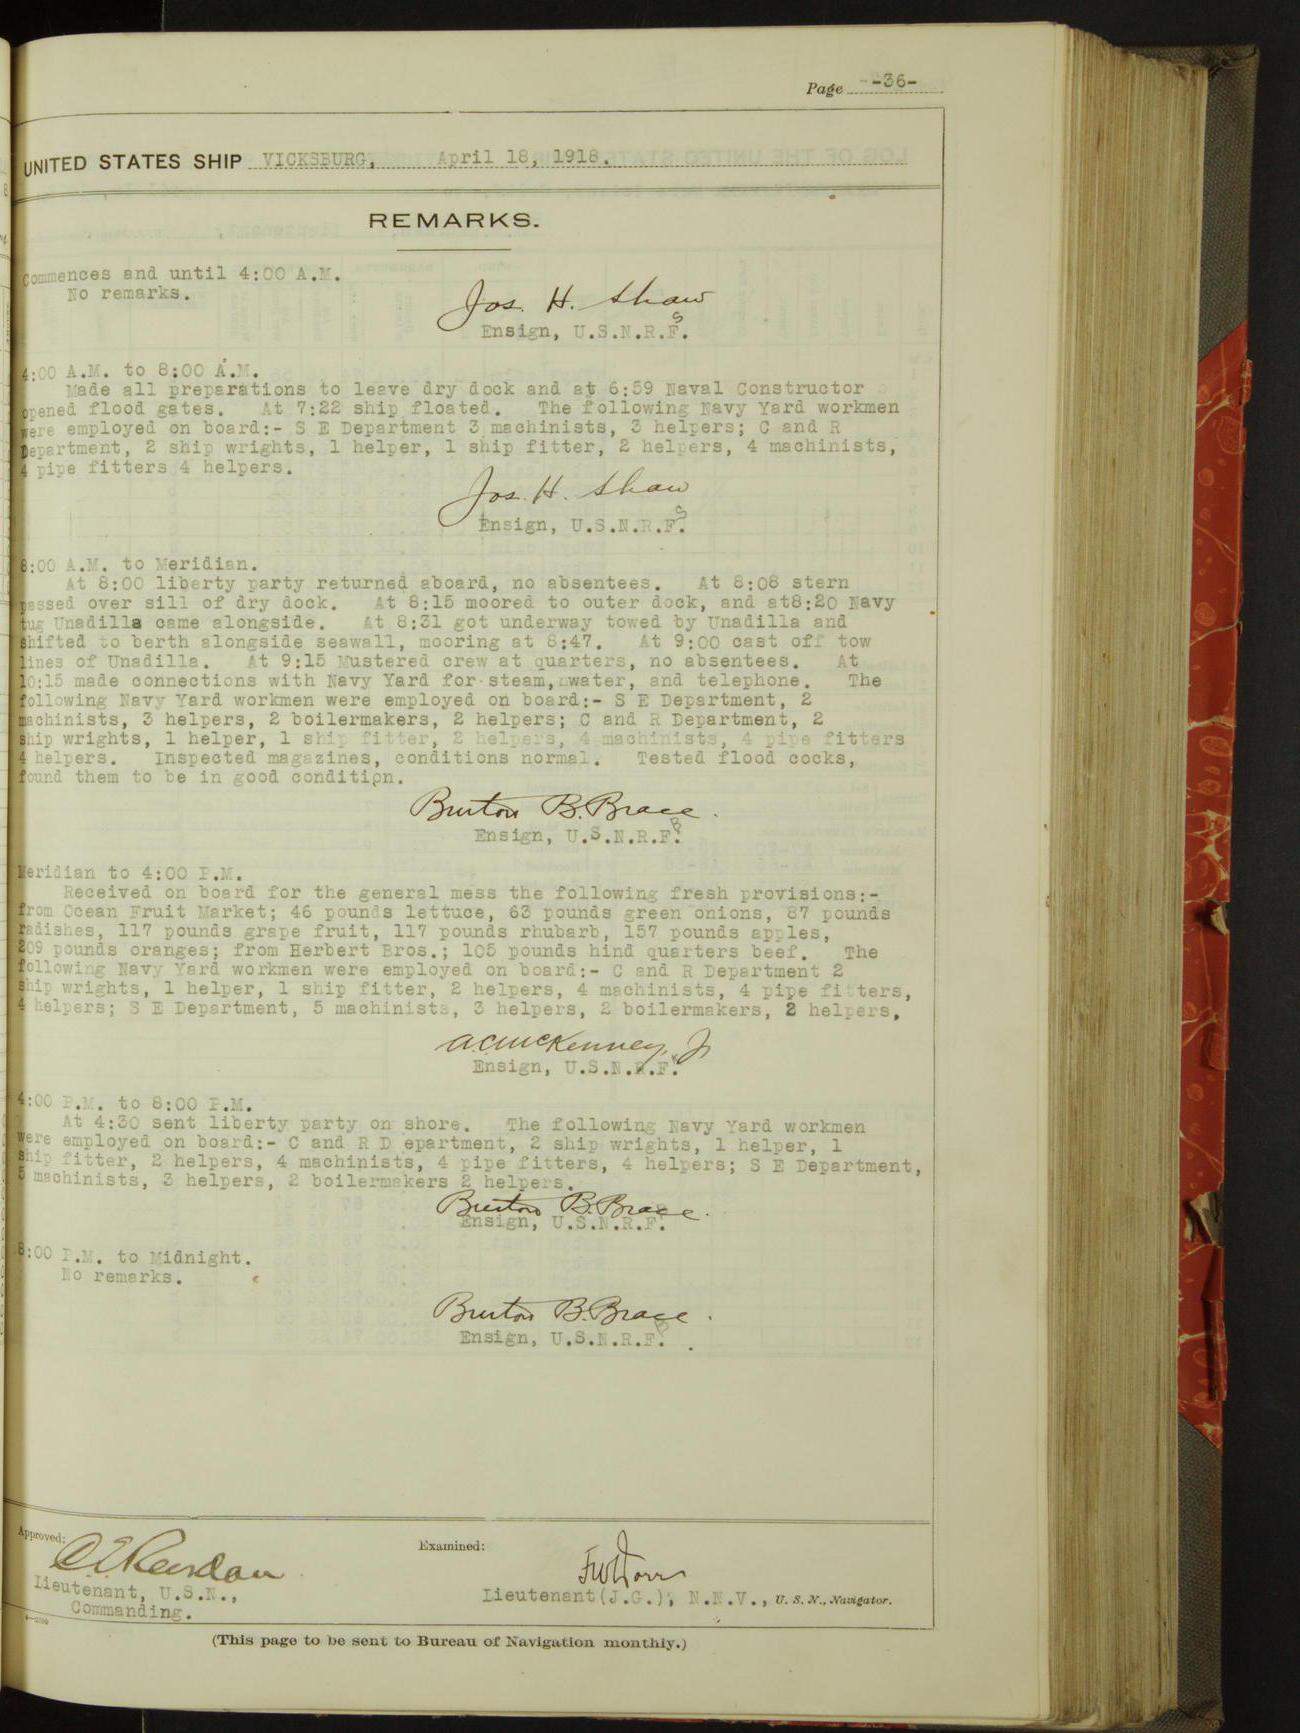 Page -36-
UNITED STATES SHIP VICKSBURG, April 18, 1918.
REMARKS.
Commences and until 4:00 A.M.
No remarks.
Jos. H. Shaw
S
Ensign, U.S.N.R.F.
4:00 A.M. to 8:00 A.M.
Made all preparations to leave dry dock and at 6:59 Naval Constructor
opened flood gates. At 7:22 ship floated. The following Navy Yard workmen
were employed on board:- S E Department 3 machinists, 3 helpers; C and R
Department, 2 ship wrights, 1 helper, 1 ship fitter, 2 helpers, 4 machinists,
4 pipe fitters 4 helpers.
Jos. H. Shaw
S
Ensign, U.S.N.R.F.
8:00 A.M. to Meridian.
At 8:00 liberty party returned aboard, no absentees. At 8:08 stern
passed over sill of dry dock. At 8:15 moored to outer dock, and at8:20 Navy
tug Unadilla came alongside. At 8:31 got underway towed by Unadilla and
shifted to berth alongside seawall, mooring at 8:47. At 9:00 cast off tow
lines of Unadilla. At 9:15 Mustered crew at quarters, no absentees. At
10:15 made connections with Navy Yard for steam, water, and telephone. The
following Navy Yard workmen were employed on board:- S E Department, 2
machinists, 3 helpers, 2 boilermakers, 2 helpers; C and R Department, 2
ship wrights, 1 helper, 1 ship fitter, 2 helpers, 4 machinists, 4 pipe fitters
4 helpers. Inspected magazines, conditions normal. Tested flood cocks,
found them to be in good condition.
Burton B. Brace.
B
Ensign, U.S.N.R.F.
Meridian to 4:00 P.M.
Received on board for the general mess the following fresh provisions:-
from Ocean Fruit Market; 46 pounds lettuce, 63 pounds green onions, 87 pounds
radishes, 117 pounds grape fruit, 117 pounds rhubarb, 157 pounds apples,
209 pounds oranges; from Herbert Bros.; 105 pounds hind quarters beef. The
following Navy Yard workmen were employed on board:- C and R Department 2
ship wrights, 1 helper, 1 ship fitter, 2 helpers, 4 machinists, 4 pipe fitters,
4 helpers; S E Department, 5 machinists, 3 helpers, 2 boilermakers, 2 helpers.
A.C. McKenney, Jr
Ensign, U.S.N.R.F.
4:00 P.M. to 8:00 P.M.
At 4:30 sent liberty party on shore. The following Navy Yard workmen
were employed on board:- C and R D epartment, 2 ship wrights, 1 helper, 1
ship fitter, 2 helpers, 4 machinists, 4 pipe fitters, 4 helpers; S E Department,
5 machinists, 3 helpers, 2 boilermakers 2 helpers.
Burton B. Brace.
Ensign, U.S.N.R.F.
8:00 P.M. to Midnight.
No remarks.
Burton B. Brace.
B
Ensign, U.S.N.R.F.
Approved:
Examined:
Lieutenant, U.S.N.,
Commanding.
Lieutenant(J.G.), N.N.V., U. S. N., Navigator.
(This page to be sent to Bureau of Navigation monthly.)